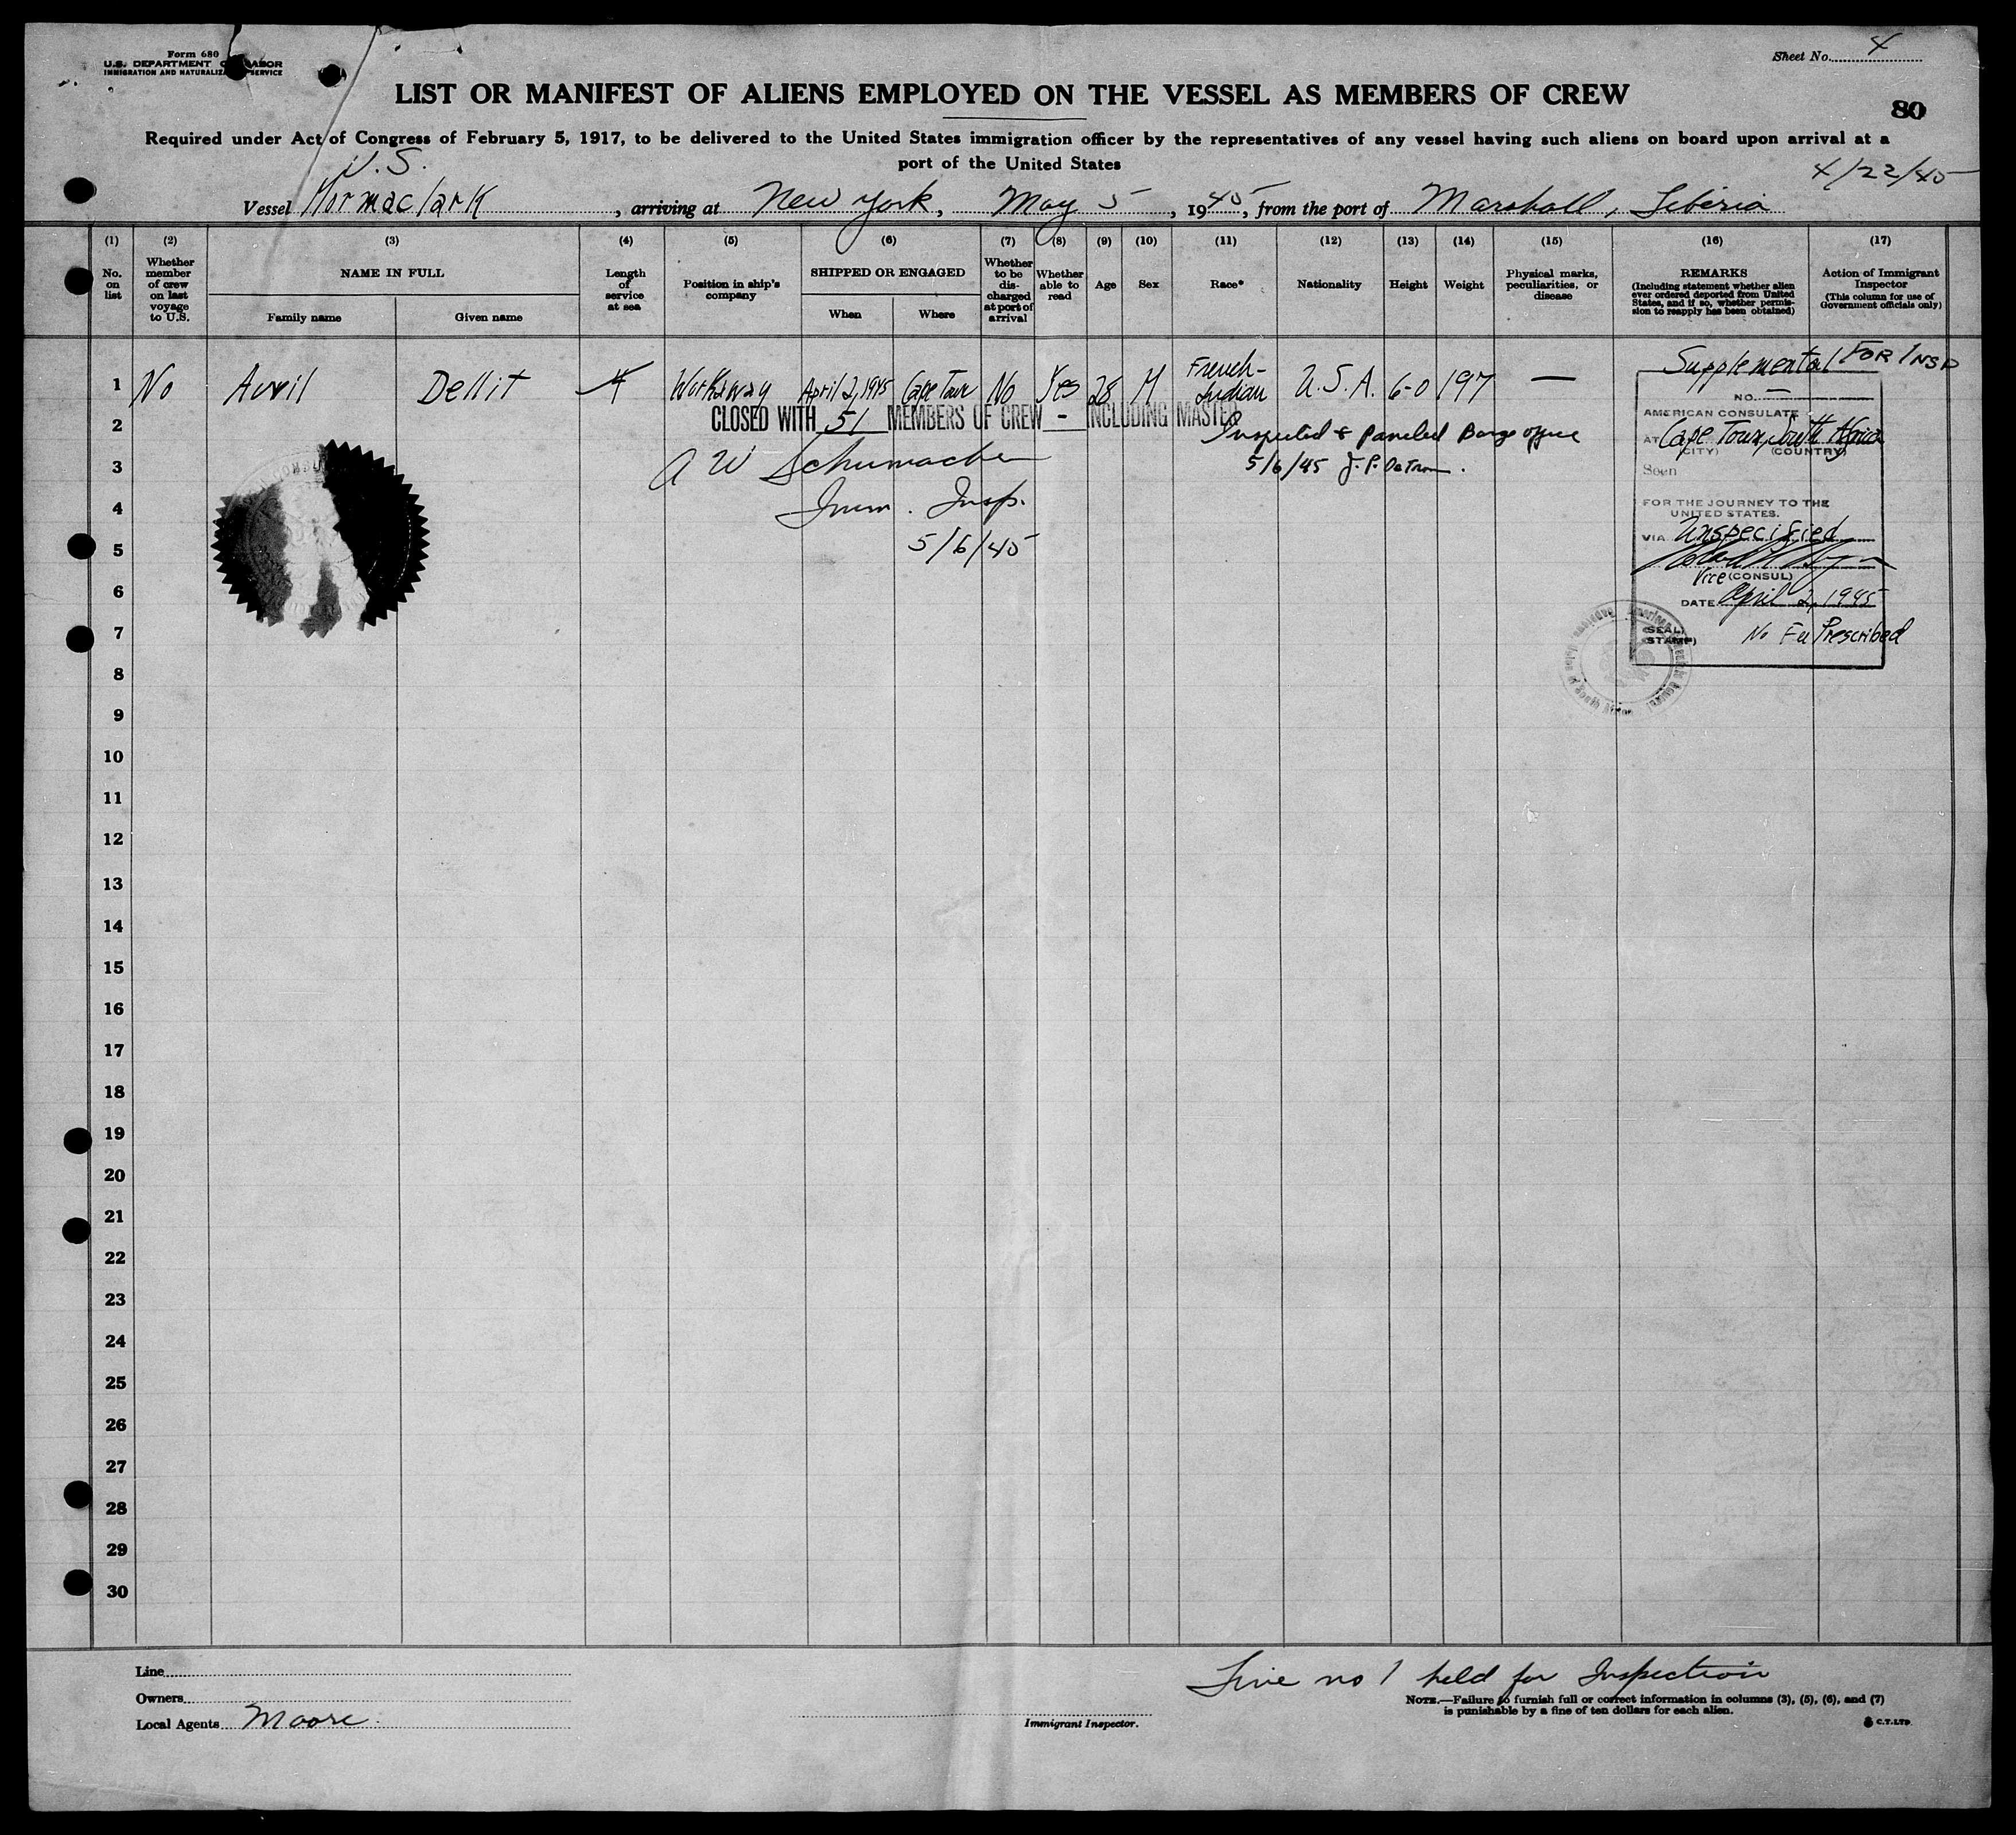 Form 680
U.S. DEPARTMENT OF LABOR
IMMIGRATION AND NATURALIZATION SERVICE
Sheet No. 4
LIST OR MANIFEST OF ALIENS EMPLOYED ON THE VESSEL AS MEMBERS OF CREW
80
Required under Act of Congress of February 5, 1917, to be delivered to the United States immigration officer by the representatives of any vessel having such aliens on board upon arrival at a
port of the United States
U.S.
4/22/45
Vessel Mormaclark, arriving at New York, May 5, 1945, from the port of Marshall, Liberia
(1) (2) (3) (4) (5) (6) (7) (8) (9) (10) (11) (12) (13) (14) (15) (16) (17)
No. on list
Whether member of crew on last voyage to U.S.
NAME IN FULL
Family name
Given name
Length of service at sea
Position in ship's company
SHIPPED OR ENGAGED
When
Where
Whether to be discharged at port of arrival
Whether able to read
Age
Sex
Race*
Nationality
Height
Weight
Physical marks, peculiarities, or disease
REMARKS
(Including statement whether alien ever ordered deported from United States, and if so, whether permission to reapply has been obtained)
Action of Immigrant Inspector
(This column for use of Government officials only)
Supplemental FOR INSP
1 No Avril Dellit 4 Workaway April 2, 1945 Cape Town No Yes 28 M French-Indian U.S.A. 6-0 197 —
CLOSED WITH 51 MEMBERS OF CREW - INCLUDING MASTER
Inspected & Paroled Barge office
5/6/45
A W Schumacher
Imm. Insp.
5/6/45
NO. —
AMERICAN CONSULATE
AT Cape Town, South Africa
(CITY) (COUNTRY)
Seen
FOR THE JOURNEY TO THE
UNITED STATES.
VIA Unspecified
Vice (CONSUL)
DATE April 2, 1945
(SEAL)
STAMP)
No Fee Prescribed
2
3
4
5
6
7
8
9
10
11
12
13
14
15
16
17
18
19
20
21
22
23
24
25
26
27
28
29
30
Line
Owners
Local Agents Moore.
Immigrant Inspector.
Line no 1 held for Inspection
NOTE.—Failure to furnish full or correct information in columns (3), (5), (6), and (7)
is punishable by a fine of ten dollars for each alien.
C.T.LTD.